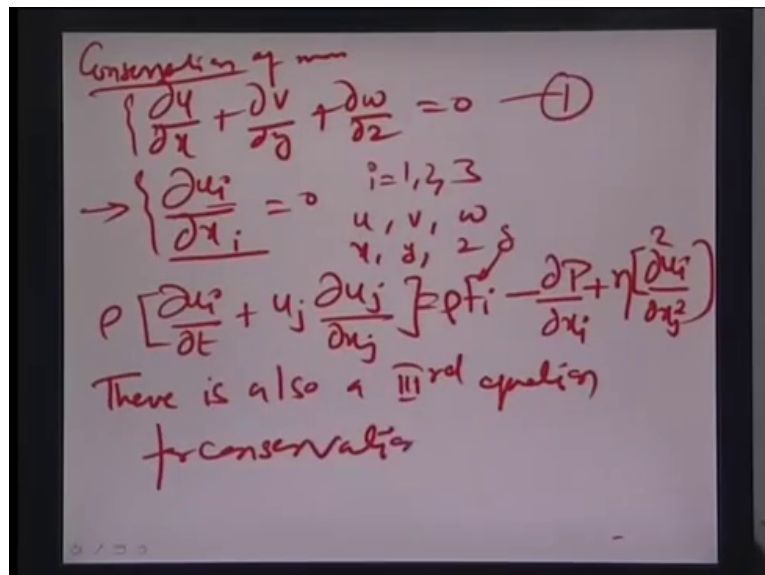 Conservation of mass
{ ∂u/∂x + ∂v/∂y + ∂w/∂z = 0 — ①
→ { ∂uᵢ/∂xᵢ = 0 i=1,2,3
u, v, w
x, y, z g
ρ [ ∂uᵢ/∂t + uⱼ ∂uⱼ/∂xⱼ ] = ρfᵢ − ∂P/∂xᵢ + η [ ∂²uᵢ/∂xⱼ² )
There is also a IIIrd equation
for conservation